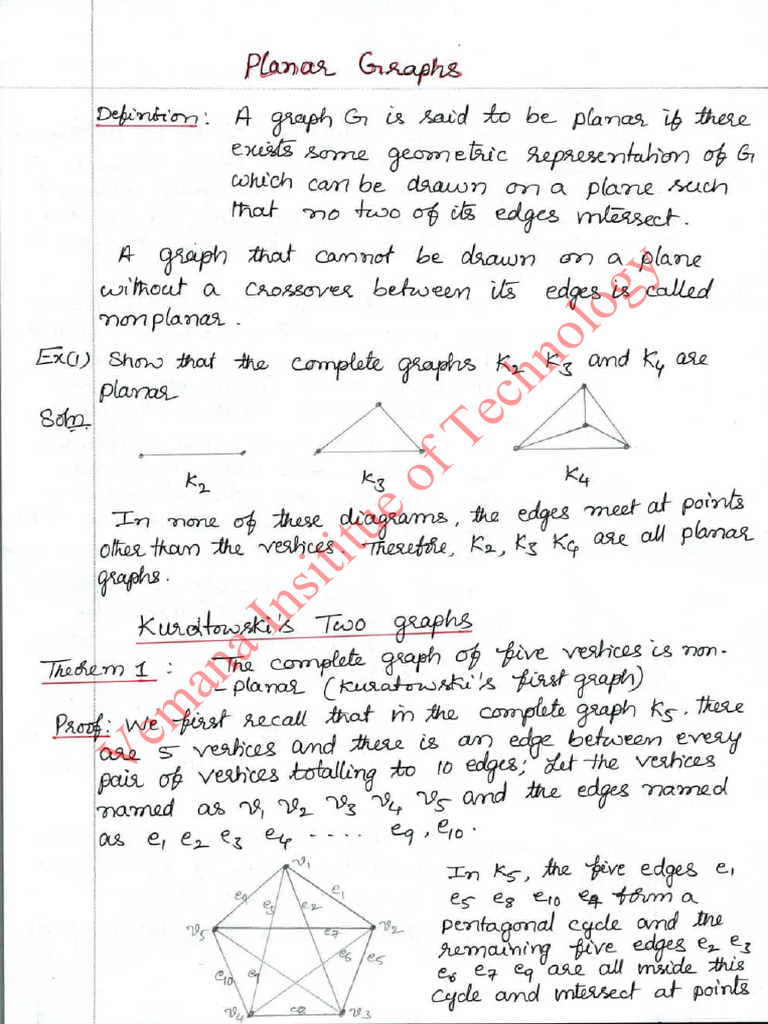 Planar Graphs
Definition: A graph G is said to be planar if there
exists some geometric representation of G
which can be drawn on a plane such
that no two of its edges intersect.
A graph that cannot be drawn on a plane
without a crossover between its edges is called
nonplanar.
Ex(1) Show that the complete graphs K2 K3 and K4 are
planar
Soln
K2 K3 K4
In none of these diagrams, the edges meet at points
other than the vertices. Therefore, K2, K3 K4 are all planar
graphs.
Kuratowski's Two graphs
Theorem 1 : The complete graph of five vertices is non-
-planar (Kuratowski's first graph)
Proof: We first recall that in the complete graph K5, there
are 5 vertices and there is an edge between every
pair of vertices totalling to 10 edges; Let the vertices
named as v1 v2 v3 v4 v5 and the edges named
as e1 e2 e3 e4 ..... e9, e10.
v1
e4 e3 e2 e1
v5 e7 v2
e6 e5
e10 e9
v4 e8 v3
In K5, the five edges e1
e5 e8 e10 e4 form a
pentagonal cycle and the
remaining five edges e2 e3
e6 e7 e9 are all inside this
cycle and intersect at points
Vemana Insititue of Technology